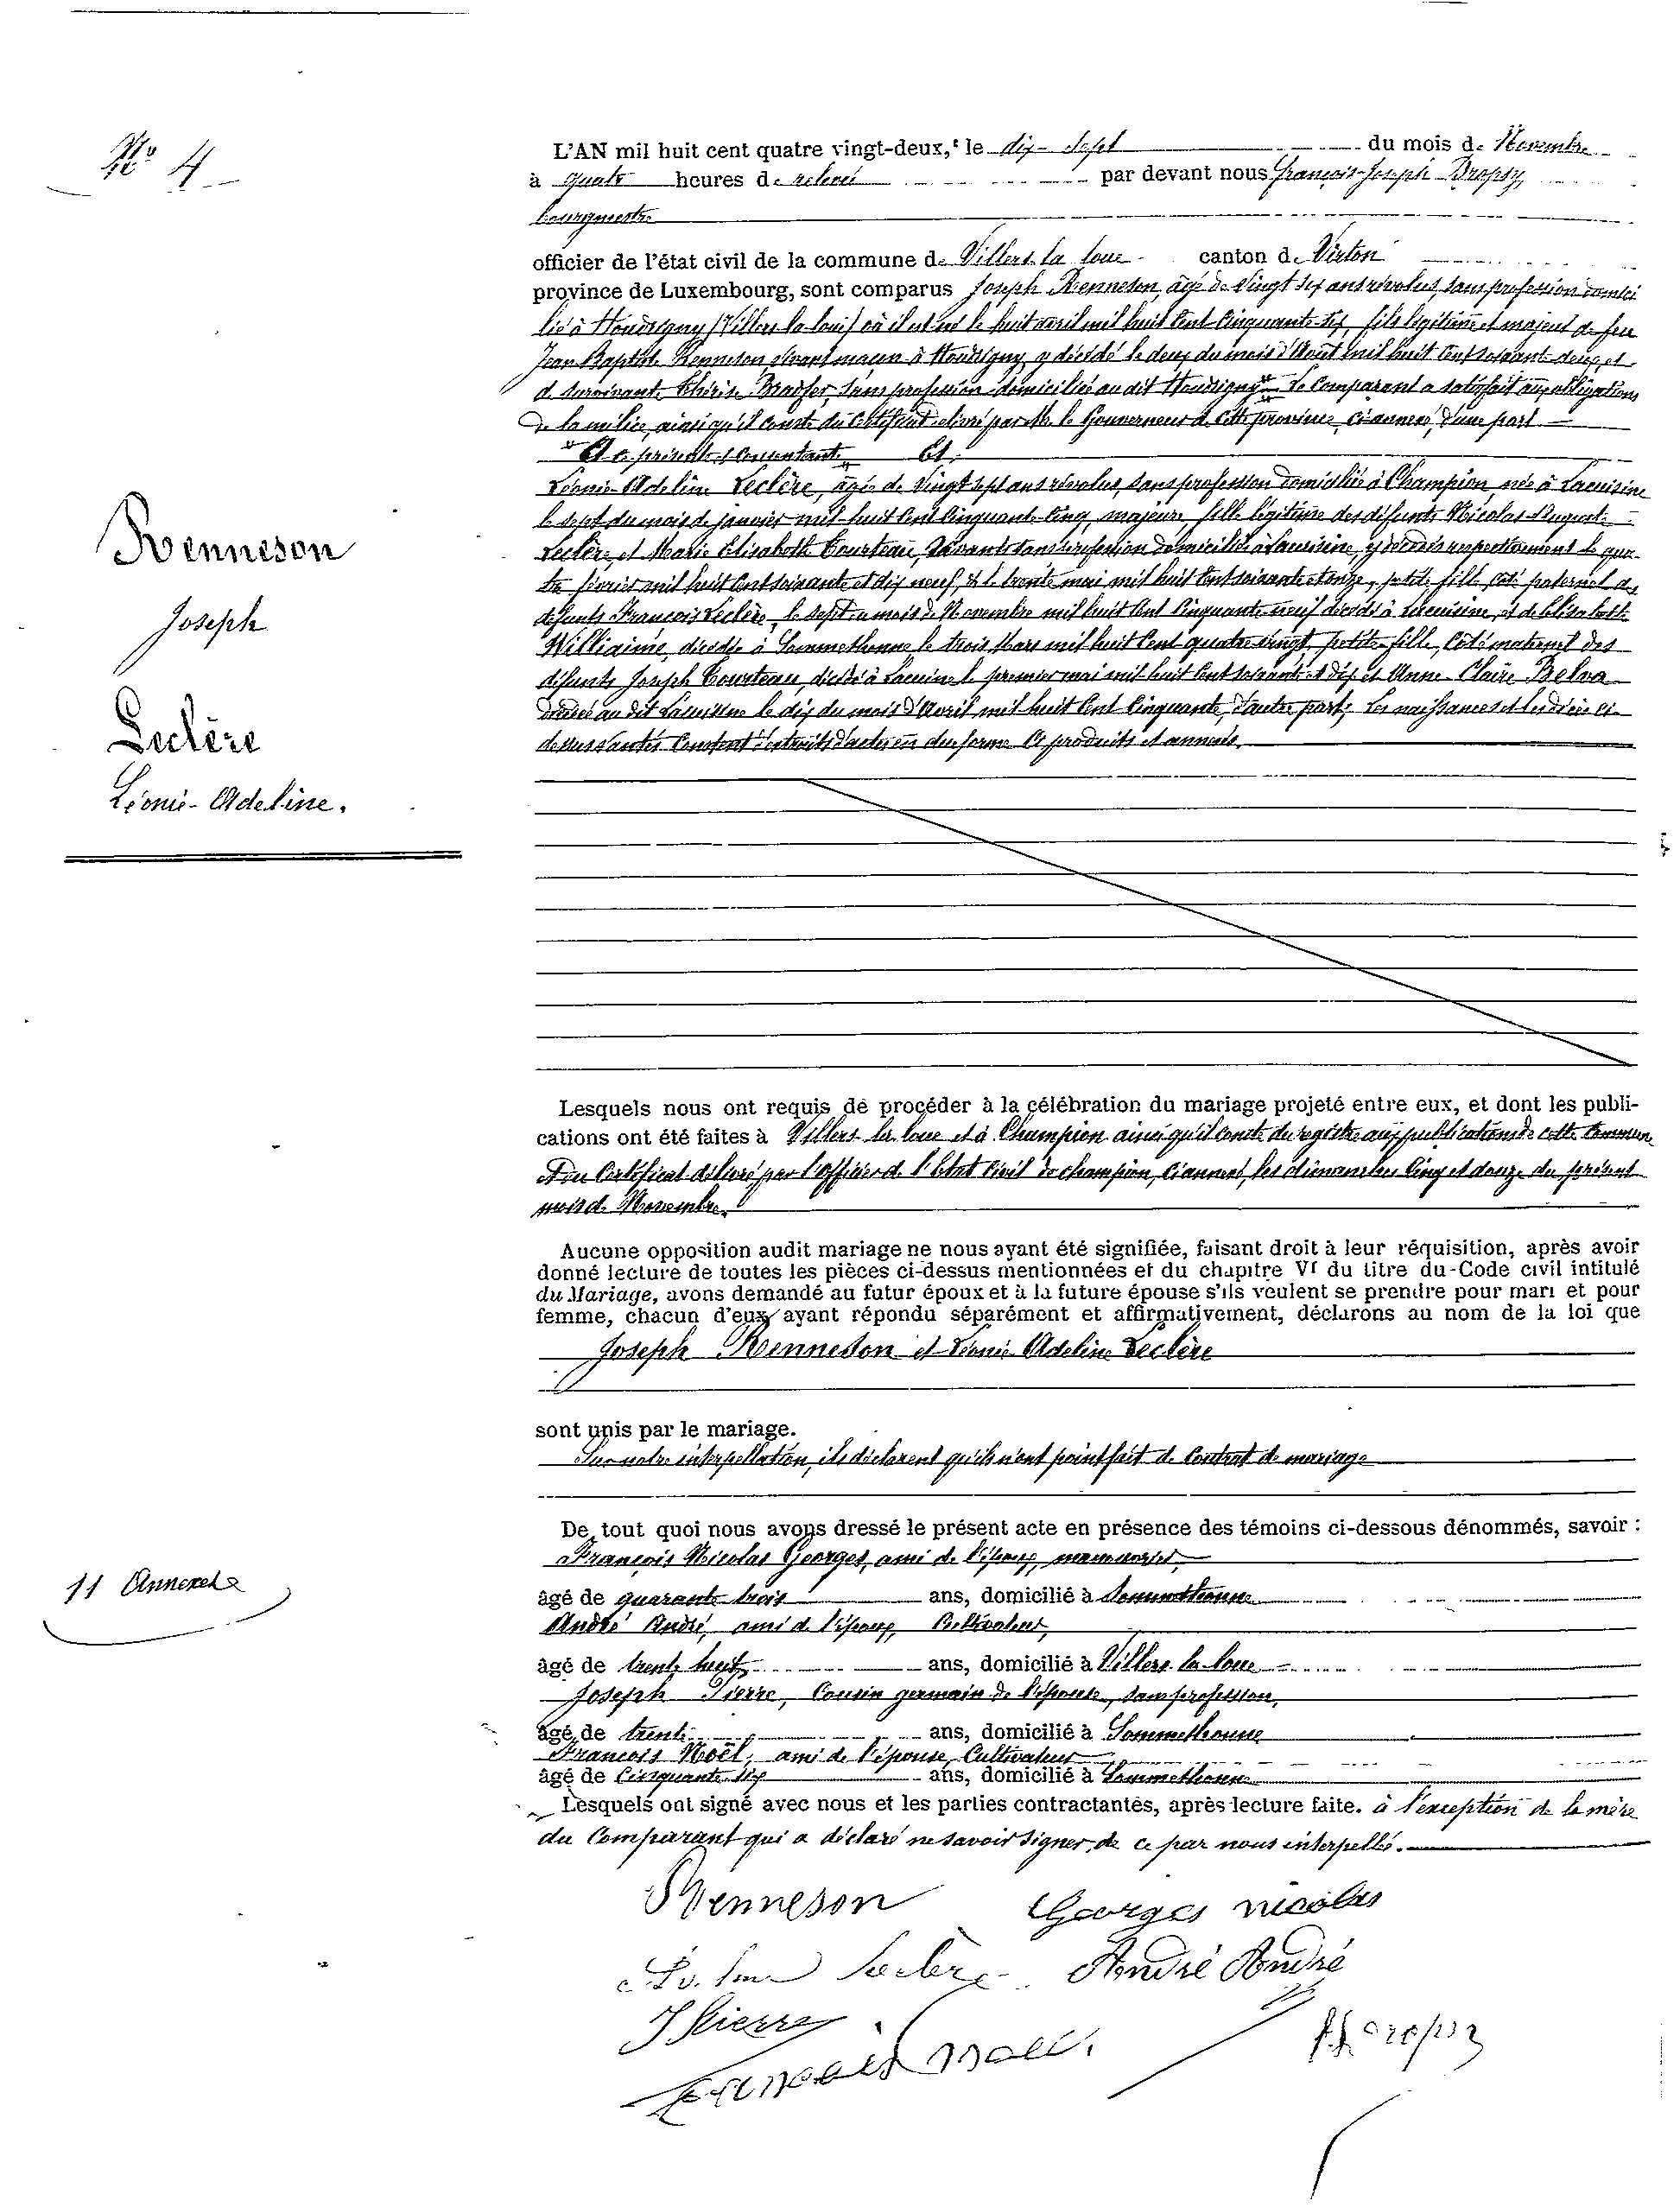 N° 4
L'AN mil huit cent quatre vingt-deux, le dix-sept du mois de Novembre
à quatre heures de relevée par devant nous François-Joseph Dropsy,
bourgmestre
officier de l'état civil de la commune de Villers la loue canton de Virton
province de Luxembourg, sont comparus Joseph Renneson, âgé de vingt six ans révolus, sans profession domici
lié à Houdrigny (Villers la loue) où il est né le huit avril mil huit cent cinquante six, fils légitime et majeur de feu
Jean Baptiste Renneson, vivant maçon à Houdrigny, y décédé le deux du mois d'Août mil huit cent soixante deux, et
de survivante Thérèse sans profession domiciliée au dit Houdrigny Le comparant a satisfait aux obligations
de la milice, ainsi qu'il conste du certificat délivré par Mr le Gouverneur de cette province, ci annexé, d'une part
Et
Léonie-Adeline Leclère, âgée de vingt sept ans révolus, sans profession domiciliée à Champion, née à Lacuisine
le sept du mois de janvier mil huit cent cinquante cinq, majeure, fille légitime des défunts Nicolas-Auguste
Leclère, et Marie Elisabeth Courteau, vivants sans profession domiciliés à Lacuisine, y décédés respectivement le qua-
tre février mil huit cent soixante et dix neuf, & le trente mai mil huit cent soixante et onze, petite fille, côté paternel des
défunts François Leclère, le sept du mois de Novembre mil huit cent cinquante neuf décédé à Lacuisine, et de Elisabeth
Williaime, décédée à Sommethonne le trois Mars mil huit cent quatre vingt, petite-fille, côté maternel des
défunts Joseph Courteau, décédé à Lacuisine le premier mai mil huit cent soixante et dix et Anne-Claire Belva
décédée au dit Lacuisine le dix du mois d'Avril mil huit cent cinquante, d'autre part; Les naissances et les décès ci-
dessus d'extraits d'actes en due forme ici produits et annexés.
Renneson
Joseph
Leclère
Léonie-Adeline.
Lesquels nous ont requis de procéder à la célébration du mariage projeté entre eux, et dont les publi-
cations ont été faites à Villers la loue et à Champion ainsi qu'il conste du registre aux publications de cette Commune
et du certificat délivré par l'officier de l'Etat Civil de champion, ci annexé, les dimanches cinq et douze du présent
mois de Novembre.
Aucune opposition audit mariage ne nous ayant été signifiée, faisant droit à leur réquisition, après avoir
donné lecture de toutes les pièces ci-dessus mentionnées et du chapitre VI du titre du Code civil intitulé
du Mariage, avons demandé au futur époux et à la future épouse s'ils veulent se prendre pour mari et pour
femme, chacun d'eux ayant répondu séparément et affirmativement, déclarons au nom de la loi que
Joseph Renneson et Léonie Adeline Leclère
sont unis par le mariage.
Sur notre interpellation, ils déclarent qu'ils n'ont point fait de contrat de mariage
De tout quoi nous avons dressé le présent acte en présence des témoins ci-dessous dénommés, savoir :
François Nicolas Georges, ami de l'époux,
âgé de quarante trois ans, domicilié à Sommethonne
André André, ami de l'époux, Cultivateur,
âgé de trente huit ans, domicilié à Villers la loue
Joseph Pierre, Cousin germain de l'épouse, sans profession,
âgé de trente ans, domicilié à Sommethonne
François Noël, ami de l'épouse, Cultivateur
âgé de cinquante six ans, domicilié à Sommethonne
Lesquels ont signé avec nous et les parties contractantes, après lecture faite. à l'exception de la mère
du Comparant qui a déclaré ne savoir signer, de ce par nous interpellée.
11 Annexes
Renneson Georges nicolas
Leclère André André
J Pierre
françois noël.